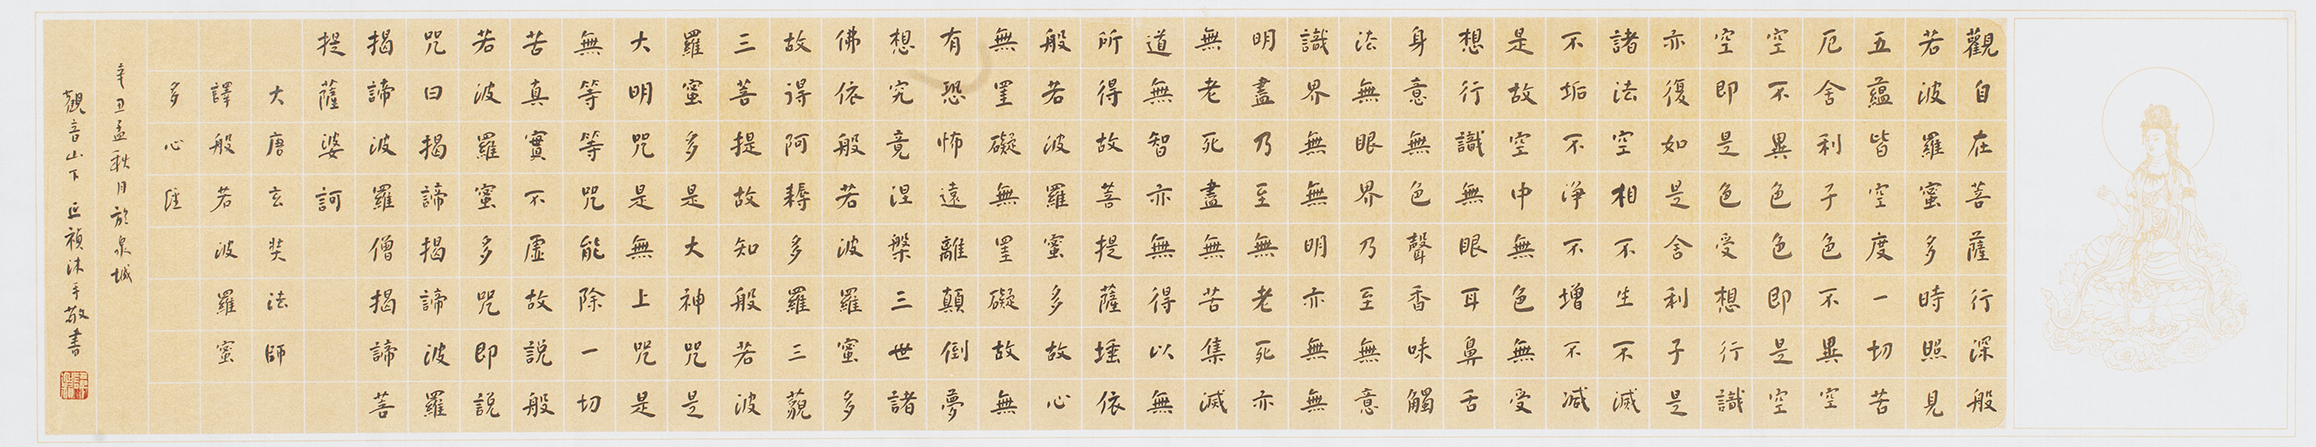 觀自在菩薩行深般
若波羅蜜多時照見
五蘊皆空度一切苦
厄舍利子色不異空
空不異色色即是空
空即是色受想行識
亦復如是舍利子是
諸法空相不生不滅
不垢不淨不增不減
是故空中無色無受
想行識無眼耳鼻舌
身意無色聲香味觸
法無眼界乃至無意
識界無無明亦無無
明盡乃至無老死亦
無老死盡無苦集滅
道無智亦無得以無
所得故菩提薩埵依
般若波羅蜜多故心
無罣礙無罣礙故無
有恐怖遠離顛倒夢
想究竟涅槃三世諸
佛依般若波羅蜜多
故得阿耨多羅三藐
三菩提故知般若波
羅蜜多是大神咒是
大明咒是無上咒是
無等等咒能除一切
苦真實不虛故說般
若波羅蜜多咒即說
咒曰揭諦揭諦波羅
揭諦波羅僧揭諦菩
提薩婆訶
大唐玄奘法師
譯般若波羅蜜
多心經
辛丑孟秋月於泉城
觀音山下 禎沐手敬書